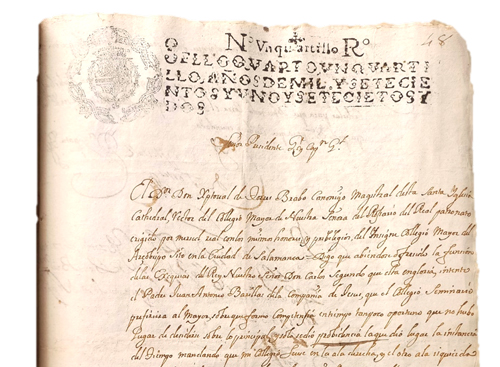 Nº Vnquartillo Rº
48
SELLO QVARTO VN QVARTI
LLO, AÑOS DE MIL, Y SETECIE
NTOS Y VNO Y SETECIETOS Y
DOS
Señor Presidente Gov.ʳ y Cap.ⁿ G.ˡ
El D.ᵒʳ Don Xptoual de Bravo Canonigo Magistral desta Santa Yglesia
Cathedral, Rector del Collegio Mayor de Nuestra Señora del Rosario del Real patronato
erigido por merced real con los mismos honores y priuilegios, del Insigne Collegio Mayor del
Arzobispo sito en la Ciudad de Salamanca Digo que abiendose ofresido la funcion
de las Exequias del Rey Nuestro Señor Don Carlos Segundo que esta en gloria, intento
el Padre Juan Antonio Basillas dela Compañia de Jesus, que el Collegio Seminario
prefiriesse al Mayor, sobre que formo Competensia en tiempo tan poco oportuno que no hubo
lugar de desidirse sobre lo prinsipal y solo se dio probidencia la que dio lugar la instancia
del tiempo mandando que mi Collegio fuese en la ala derecha, y el otro a la isquierda